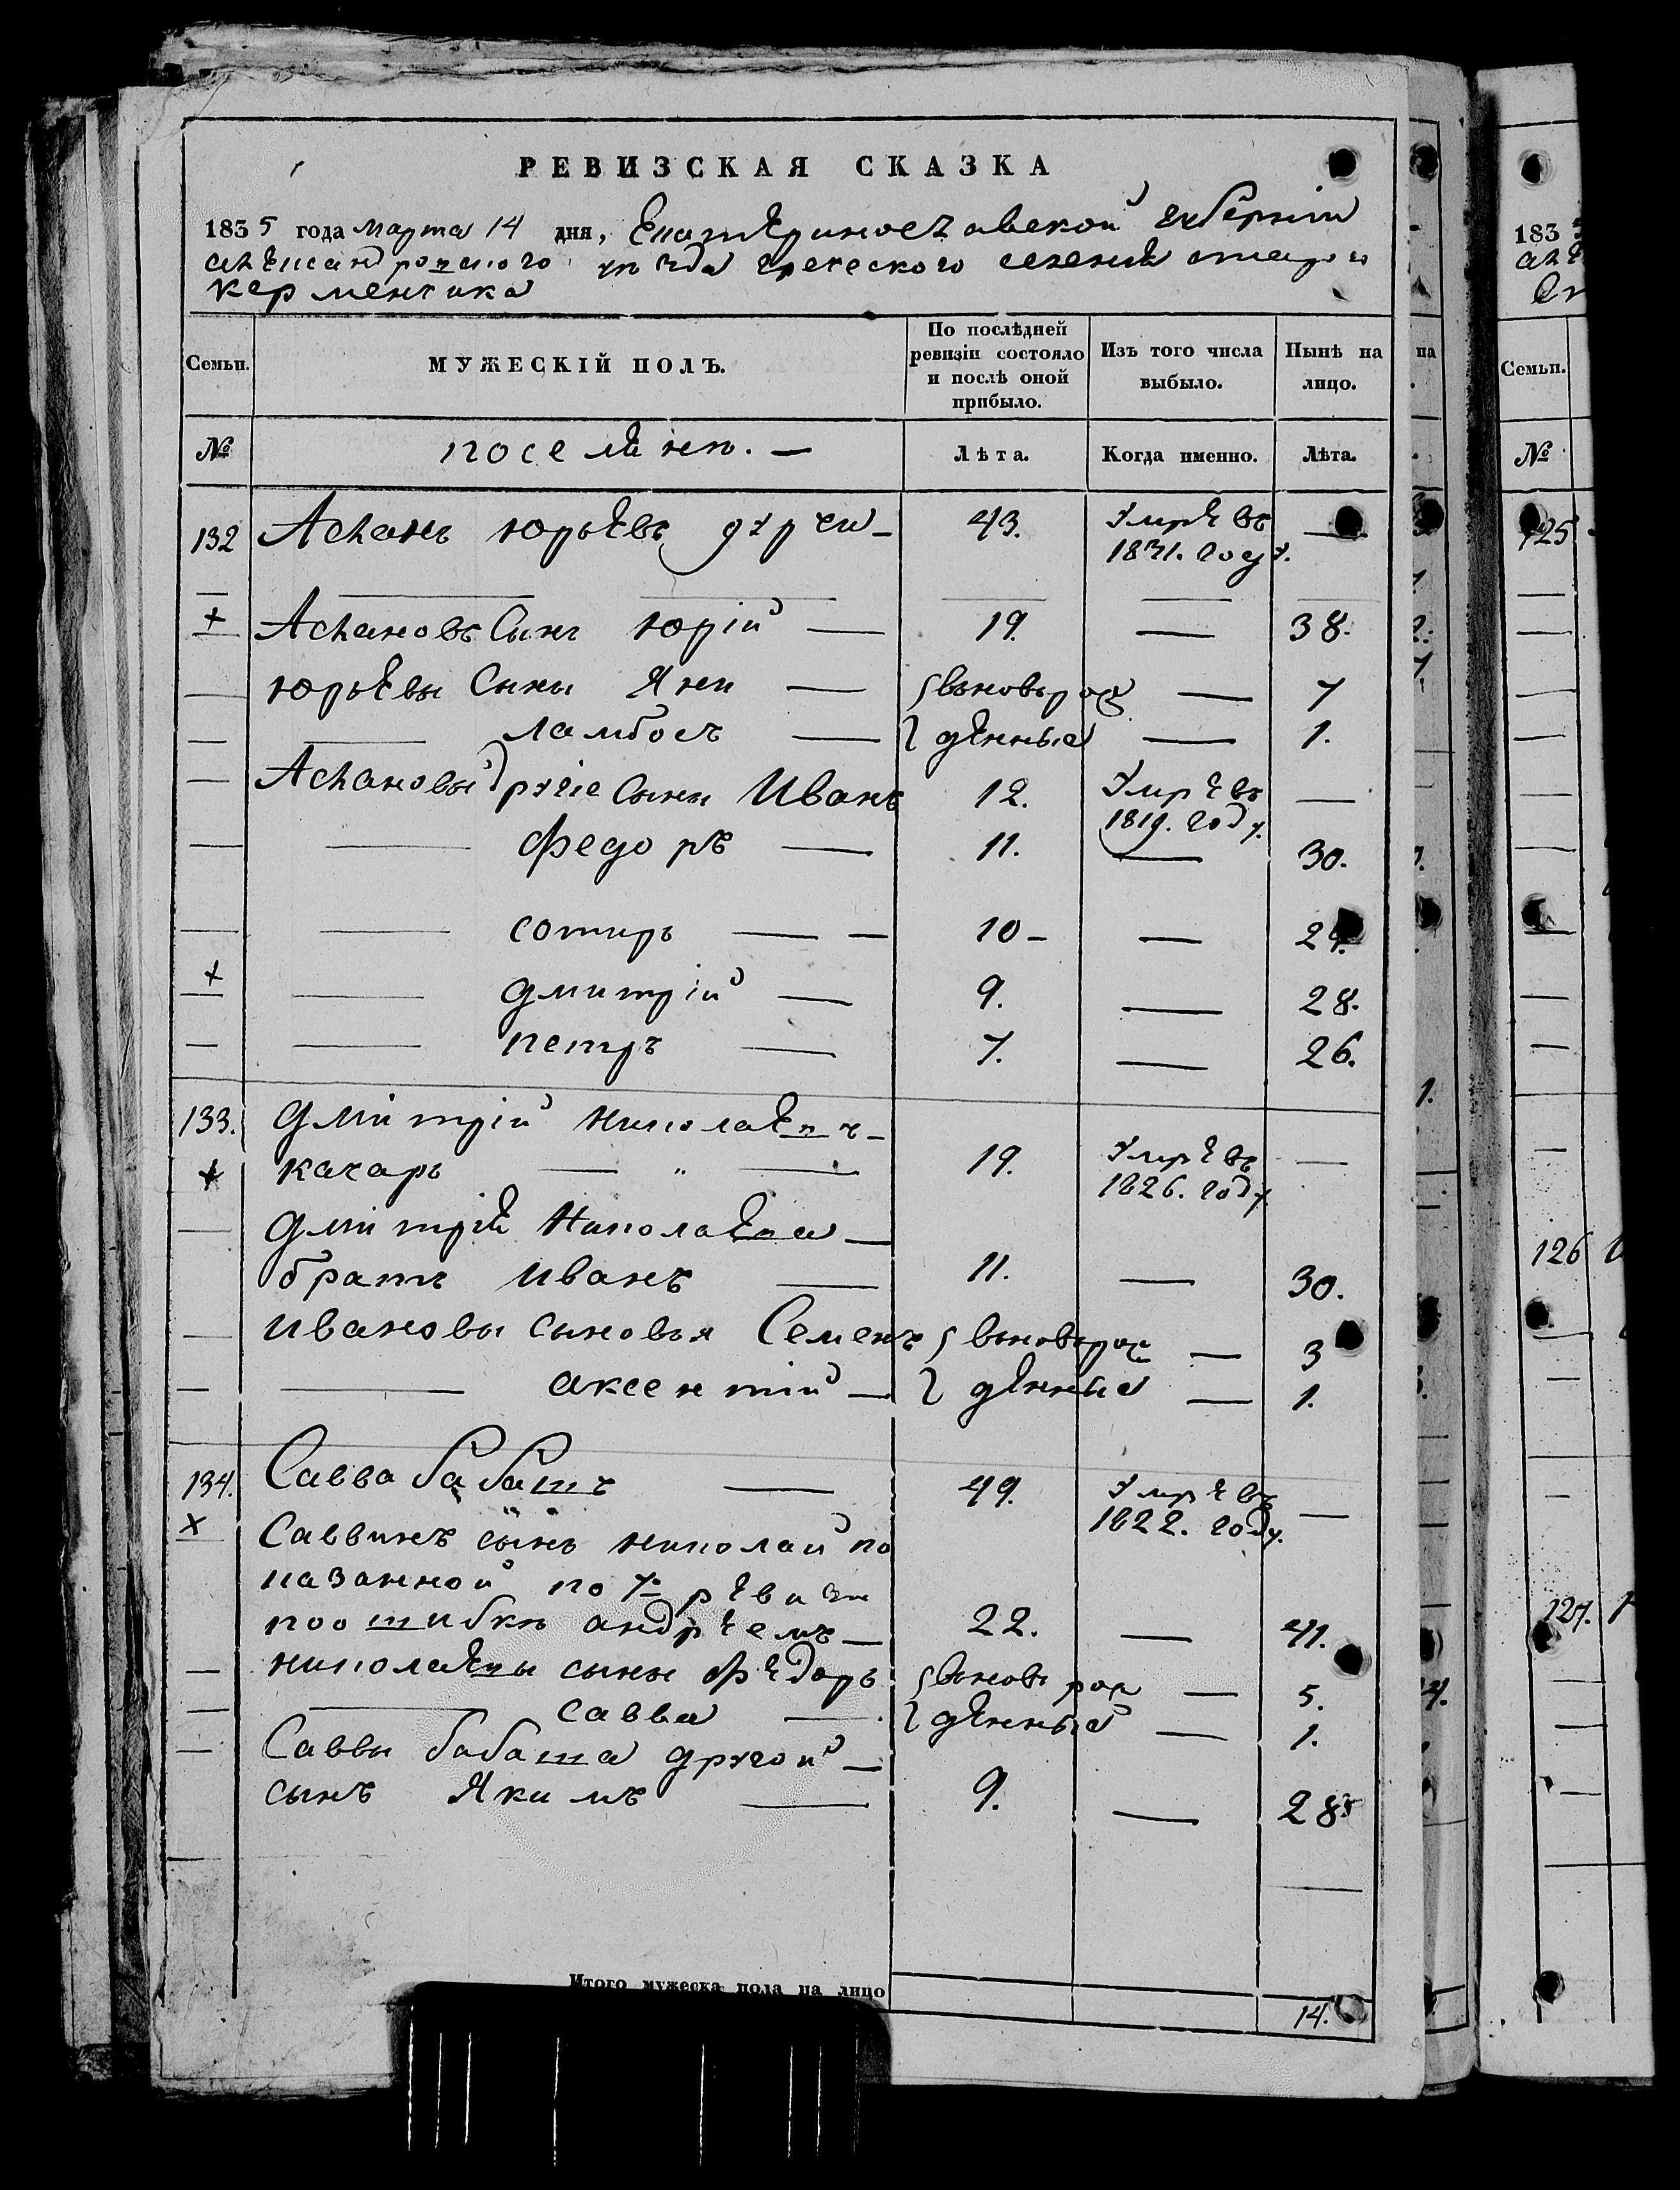 РЕВИЗСКАЯ СКАЗКА
1835 года марта 14 дня, Екатеринославской губернiи
александровского уѣзда греческого селенiя стараго
керменчика
Семьи.
МУЖЕСКІЙ ПОЛЪ.
По послѣдней ревизіи состояло и послѣ оной прибыло.
Изъ того числа выбыло.
Нынѣ на лицо.
№
поселянъ. —
Лѣта.
Когда именно.
Лѣта.
132 Асланъ юрьевъ 43. умре въ —
1831. году.
+ Аслановъ Сынъ юрiй — 19. — 38.
юрьевы Сыны Яни — вьновьрож — 7
— ламбосъ — денныа — 1.
Аслановы другiе Сыны Иванъ 12. умре въ —
1819. году.
— федоръ — 11. — 30.
— сотиръ — — 10 — — 29.
+ — дмитрiй — 9. — 28.
— петръ — 7. — 26.
133. дмитрiй николаевъ —
+ качаръ — " — 19. умре въ —
1826. году.
дмитрiя николаева —
братъ иванъ — 11. — 30.
ивановы сыновья Семенъ вьновьрож — 3
— аксентiй — денныа — 1.
134. Савва бабашъ — 49. умре въ —
x 1822. году.
Саввинъ сынъ николай по
казанной по 7й ревизи
поошибкѣ андреемъ — 22. — 41.
николаевы сыны федоръ вьновь рож — 5.
— савва — денныа — 1.
Саввы бабаша другой —
сынъ Якимъ — 9. — 28
Итого мужеска пола на лицо 14.
183
Семьи.
№
125
126
127.